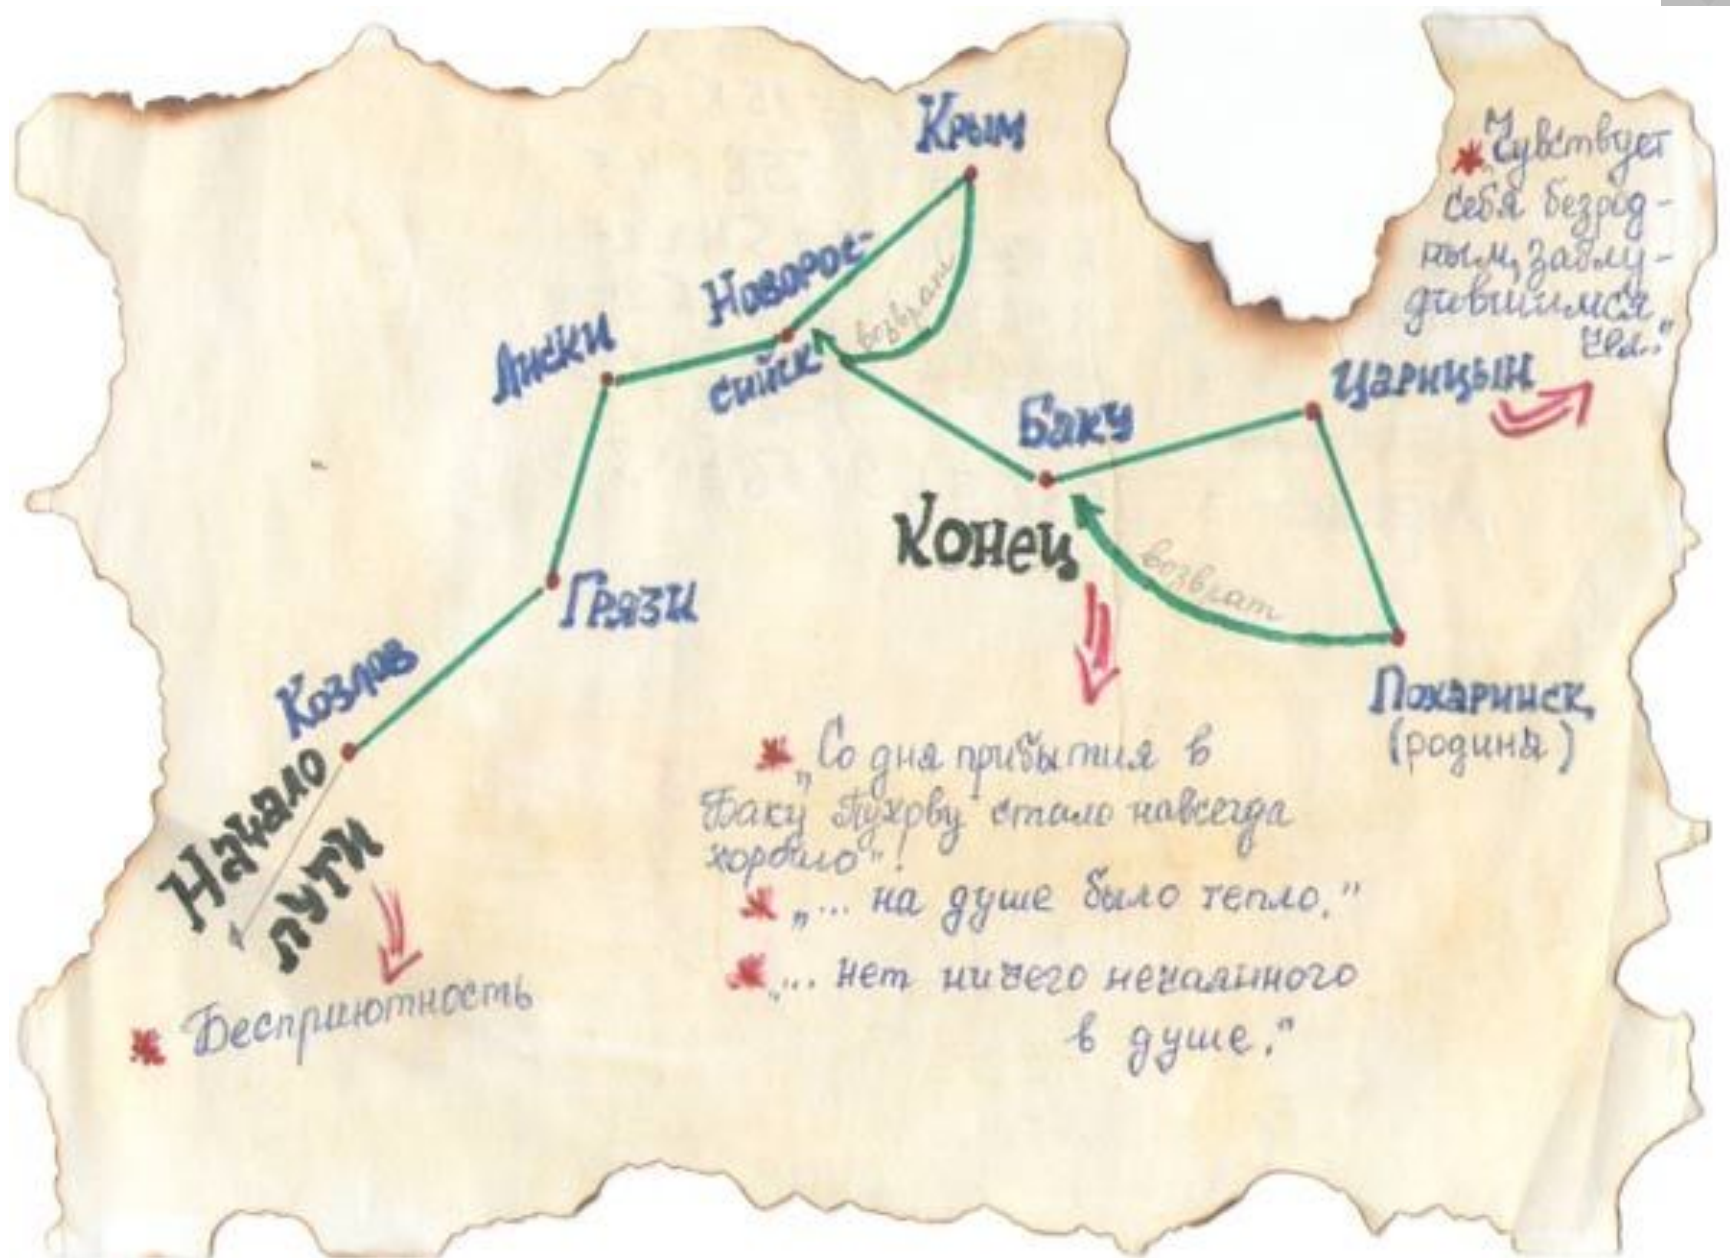 Крым
* „Чувствует
себя безрод-
ным, заблу-
дившимся
Новорос-
сийск
возврат
Лиски
Царицын
Баку
Конец
возврат
Грязи
Козлов
Похаринск
(родина)
Начало
пути
* „Со дня прибытия в
Баку Пухову стало навсегда
хорошо"!
* „... на душе было тепло."
* „... нет ничего нечаянного
в душе."
* Бесприютность